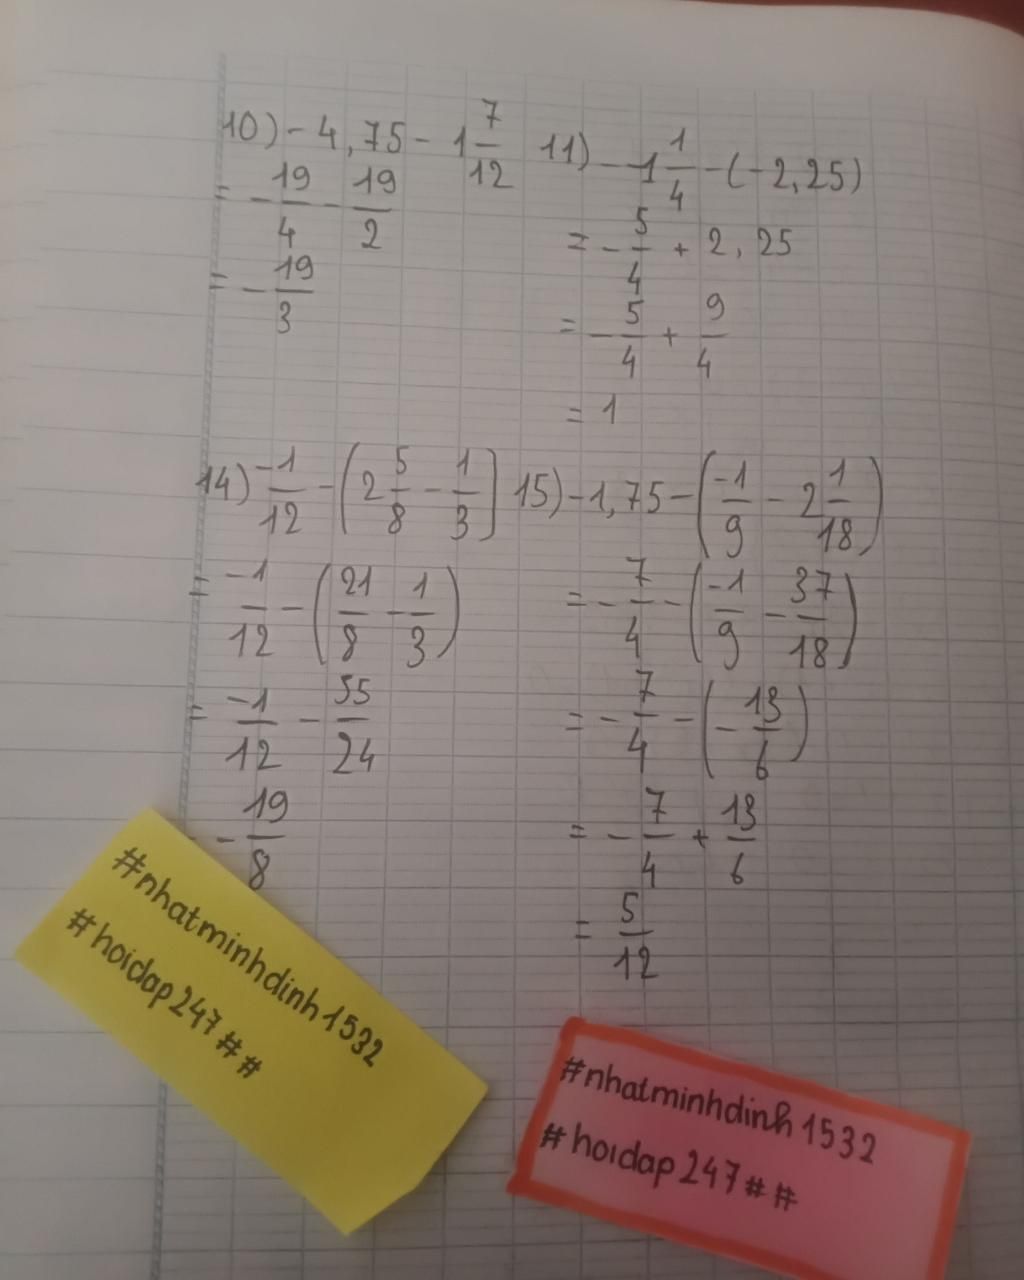 10) -4,75 - 1 7/12
= - 19/4 - 19/2
= - 19/3
11) -1 1/4 - (-2,25)
= - 5/4 + 2,25
= - 5/4 + 9/4
= 1
14) -1/12 - (2 5/8 - 1/3)
= -1/12 - (21/8 - 1/3)
= -1/12 - 55/24
- 19/8
15) -1,75 - (-1/9 - 2 1/18)
= - 7/4 - (-1/9 - 37/18)
= - 7/4 - (- 13/6)
= - 7/4 + 13/6
= 5/12
#nhatminhdinh1532
#hoidap247##
#nhatminhdinh1532
#hoidap247##